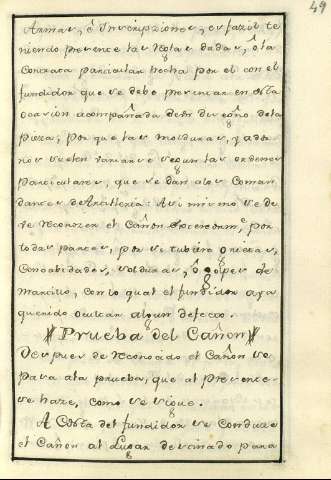 49
Armas, ô Inscripziones, es fazil te
niendo presence las Notas dadas, ô la
Concrata parcicular hecha por el con el
fundidor que se debe presencar en esta
ocasion acompañada de su diseño de la
pieza; por que las molduras, y ador
nos suelen variarse segun las ordenes
parciculares, que se dan alos Coman
dances de Arcilleria: Asi mismo se de
ve reconozer el Cañon por
todas parces, por si tubiere grietas,
Concabidades, soldduras, ô golpes de
marcillo, con lo qual el fundidor aya
querido oculcar algun defecco.
Prueba del Cañon
Despues de reconocido el Cañon se
pasa ala prueba, que al presence
se haze, como se sigue.
A Costa del fundidor se conduze
el Cañon al Lugar descinado para